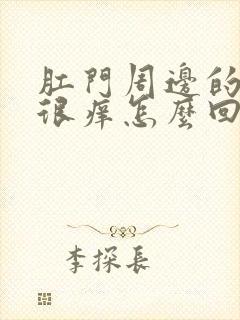 肛門周邊的
很癢怎麼回
李探長